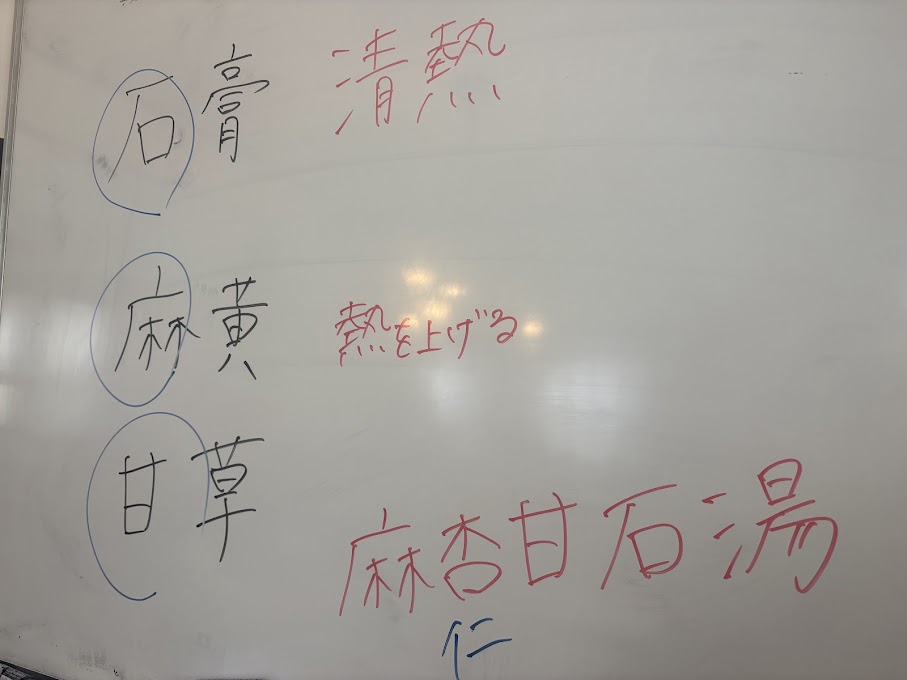 石膏 清熱
麻黄 熱を上げる
甘草
麻杏甘石湯
仁